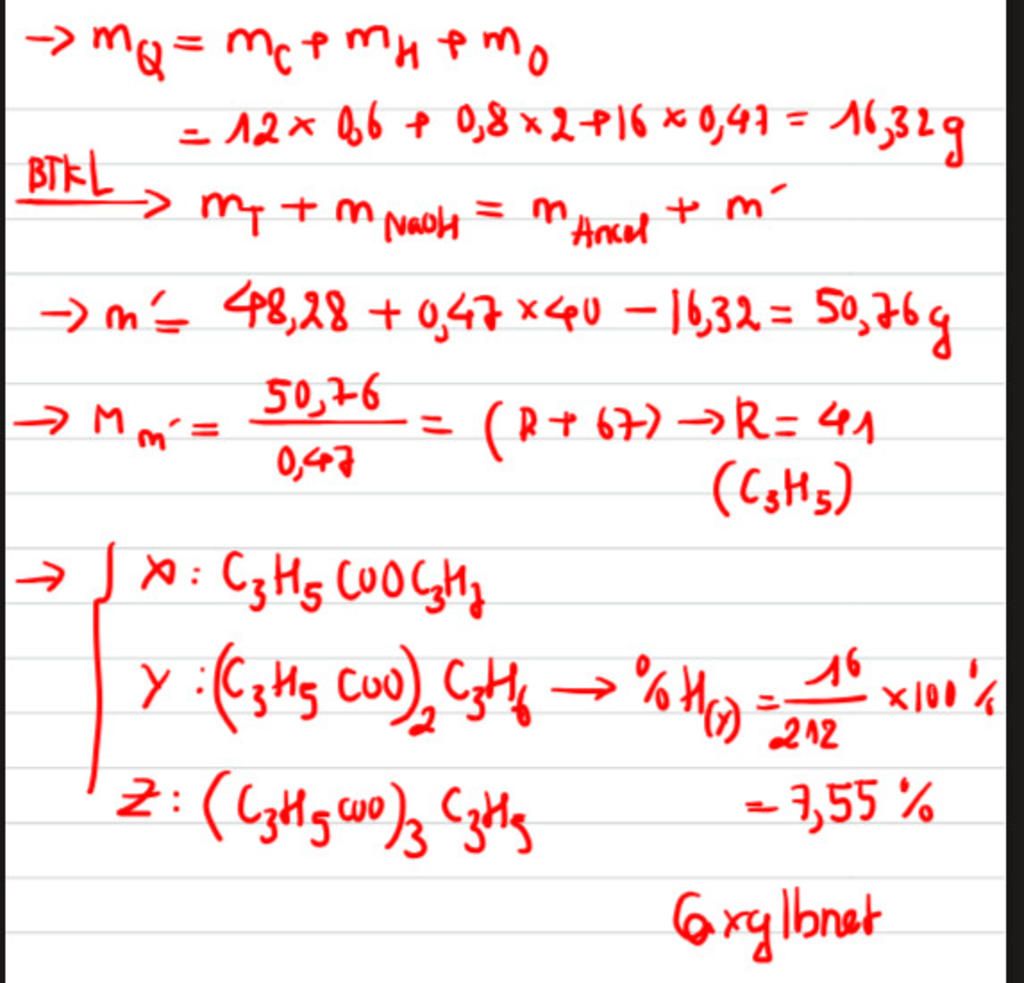 → mQ = mC + mH + mO
= 12 × 0,6 + 0,8 × 2 + 16 × 0,47 = 16,32g
BTKL → mT + mNaOH = mAncol + m'
→ m' = 48,28 + 0,47 × 40 − 16,32 = 50,76g
→ Mm' = 50,76 / 0,47 = (R + 67) → R = 41
(C3H5)
→ { X : C3H5COOC3H7
Y : (C3H5COO)2C3H6 → %H(Y) = 16 / 212 × 100%
Z : (C3H5COO)3C3H5 = 7,55%